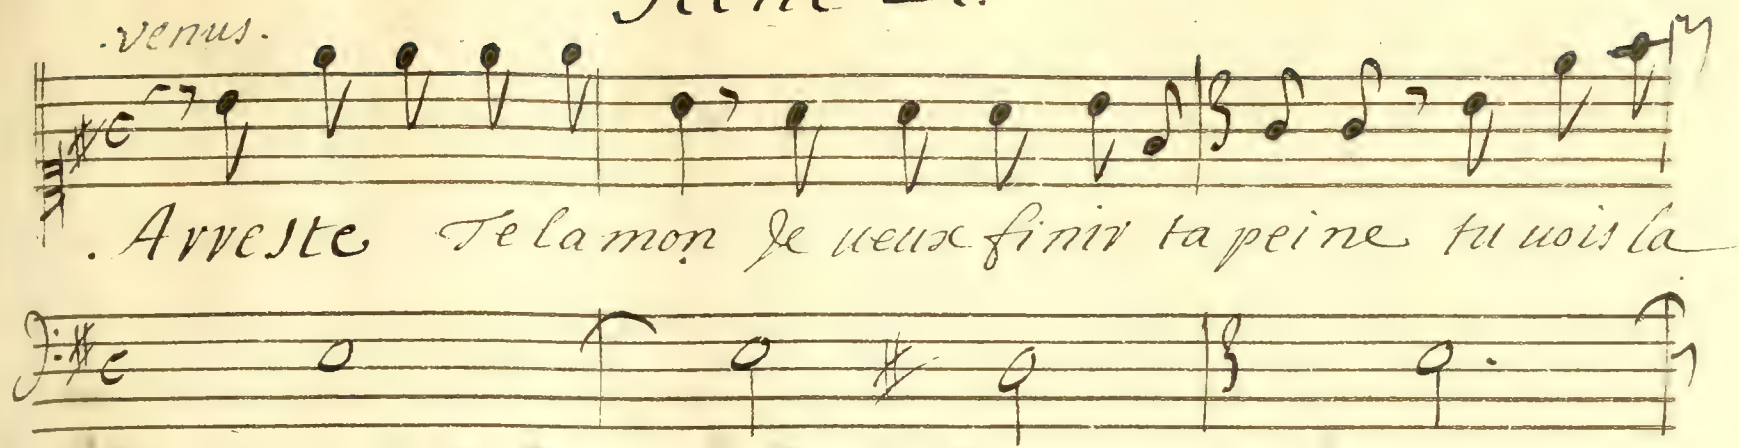 .venus.
. Arreste Telamon Je ueux finir ta peine tu uois la